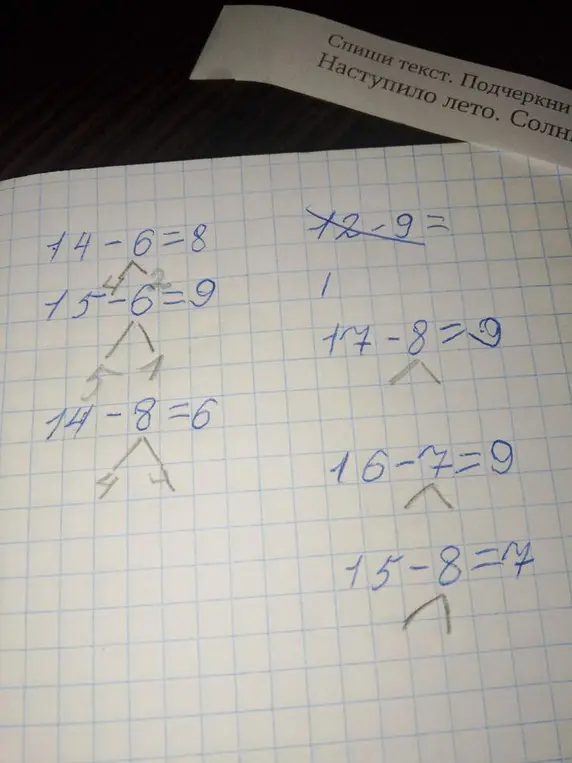 Спиши текст. Подчеркни
Наступило лето. Солн
14-6=8
4 2
15-6=9
5 1
14-8=6
4 4
12-9=
1
17-8=9
16-7=9
15-8=7